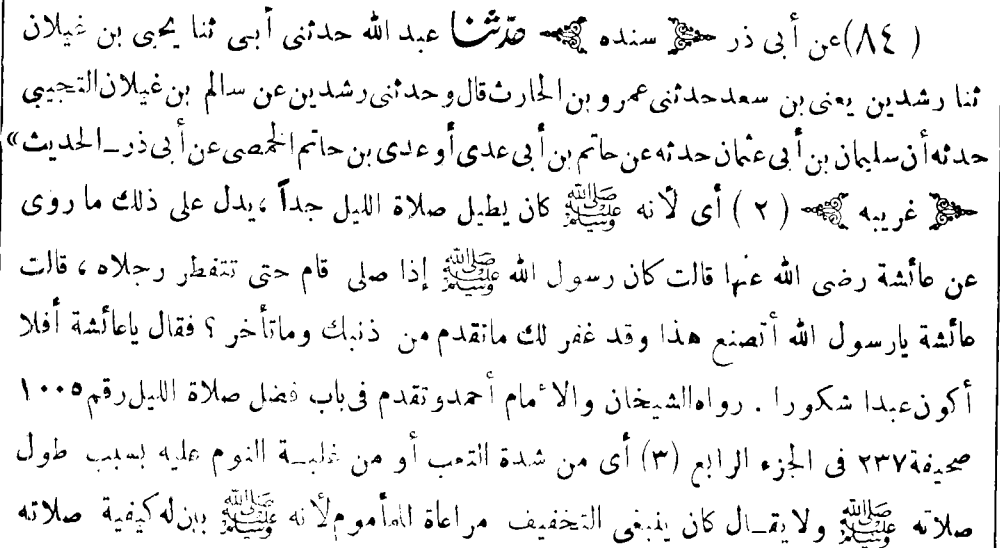 ( ٨٤)عن أبى ذر ﴿ سنده ﴾ حدّثنا عبد الله حدثنى أبى ثنا يحيى بن غيلان
ثنا رشدين يعنى بن سعد حدثنى عمرو بن الحارث قال وحدثنى رشدين عن سالم بن غيلان التجيبى
حدثه أن سليمان بن أبى عثمان حدثه عن حاتم بن أبى عدى أو عدى بن حاتم الحمصى عن أبى ذر ــ الحديث»
﴿ غريبه ﴾ ( ٢ ) أى لأنه ﷺ كان يطيل صلاة الليل جداً ، يدل على ذلك ما روى
عن عائشة رضى الله عنها قالت كان رسول الله ﷺ إذا صلى قام حتى تتفطر رجلاه ، قالت
عائشة يارسول الله أتصنع هذا وقد غفر لك ماتقدم من ذنبك وماتأخر ؟ فقال ياعائشة أفلا
أكون عبدا شكورا . رواه الشيخان والامام أحمد وتقدم فى باب فضل صلاة الليل رقم ١٠٠٥
صحيفة ٢٣٧ فى الجزء الرابع (٣) أى من شدة التعب أو من غلبـة النوم عليه بسبب طول
صلاته ﷺ ولا يقـال كان ينبغى التخفيف مراعاة للمأموم لأنه ﷺ بين له كيفية صلاته